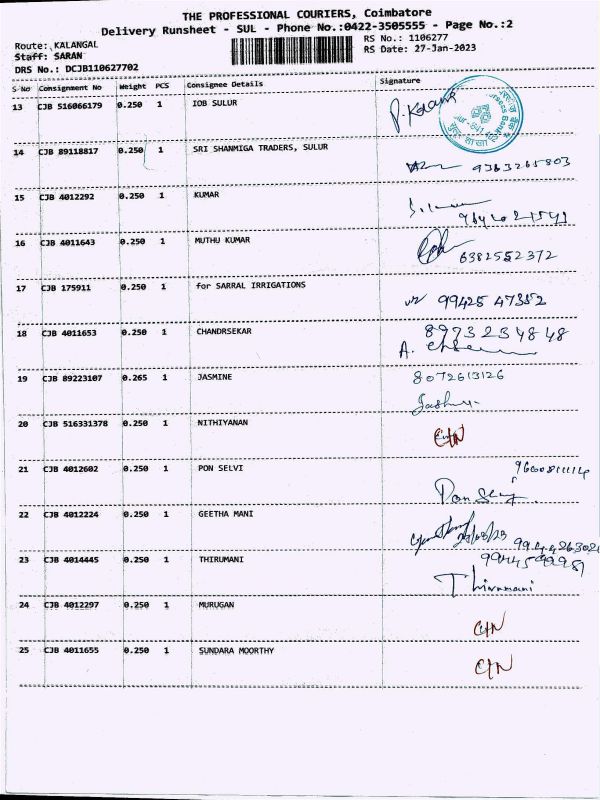 THE PROFESSIONAL COURIERS, Coimbatore
Delivery Runsheet - SUL - Phone No.:0422-3505555 - Page No.:2
Route: KALANGAL
RS No.: 1106277
Staff: SARAN
RS Date: 27-Jan-2023
DRS No.: DCJB110627702
S No Consignment No Weight PCS Consignee Details Signature
13 CJB 516066179 0.250 1 IOB SULUR
14 CJB 89118817 0.250 1 SRI SHANMIGA TRADERS, SULUR
9363265803
15 CJB 4012292 0.250 1 KUMAR
16 CJB 4011643 0.250 1 MUTHU KUMAR
6382552372
17 CJB 175911 0.250 1 for SARRAL IRRIGATIONS
99425 47352
18 CJB 4011653 0.250 1 CHANDRSEKAR
89732 34848
19 CJB 89223107 0.265 1 JASMINE 8072613126
20 CJB 516331378 0.250 1 NITHIYANAN
21 CJB 4012602 0.250 1 PON SELVI
22 CJB 4012224 0.250 1 GEETHA MANI
23 CJB 4014445 0.250 1 THIRUMANI
Thirumani
24 CJB 4012297 0.250 1 MURUGAN
25 CJB 4011655 0.250 1 SUNDARA MOORTHY